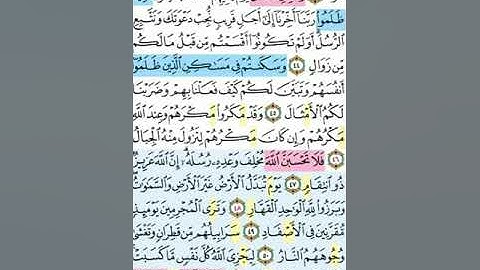 ظَلَمُوا۟ رَبَّنَآ أَخِّرْنَآ إِلَىٰٓ أَجَلٍ قَرِيبٍ نُّجِبْ دَعْوَتَكَ وَنَتَّبِعِ
ٱلرُّسُلَ ۗ أَوَلَمْ تَكُونُوٓا۟ أَقْسَمْتُم مِّن قَبْلُ مَا لَكُم
مِّن زَوَالٍ ٤٤ وَسَكَنتُمْ فِى مَسَـٰكِنِ ٱلَّذِينَ ظَلَمُوٓا۟
أَنفُسَهُمْ وَتَبَيَّنَ لَكُمْ كَيْفَ فَعَلْنَا بِهِمْ وَضَرَبْنَا
لَكُمُ ٱلْأَمْثَالَ ٤٥ وَقَدْ مَكَرُوا۟ مَكْرَهُمْ وَعِندَ ٱللَّهِ
مَكْرُهُمْ وَإِن كَانَ مَكْرُهُمْ لِتَزُولَ مِنْهُ ٱلْجِبَالُ
٤٦ فَلَا تَحْسَبَنَّ ٱللَّهَ مُخْلِفَ وَعْدِهِۦ رُسُلَهُۥٓ ۗ إِنَّ ٱللَّهَ عَزِيزٌ
ذُو ٱنتِقَامٍ ٤٧ يَوْمَ تُبَدَّلُ ٱلْأَرْضُ غَيْرَ ٱلْأَرْضِ وَٱلسَّمَـٰوَٰتُ ۖ
وَبَرَزُوا۟ لِلَّهِ ٱلْوَٰحِدِ ٱلْقَهَّارِ ٤٨ وَتَرَى ٱلْمُجْرِمِينَ يَوْمَئِذٍ
مُّقَرَّنِينَ فِى ٱلْأَصْفَادِ ٤٩ سَرَابِيلُهُم مِّن قَطِرَانٍ وَتَغْشَىٰ
وُجُوهَهُمُ ٱلنَّارُ ٥٠ لِيَجْزِىَ ٱللَّهُ كُلَّ نَفْسٍ مَّا كَسَبَتْ ۚ